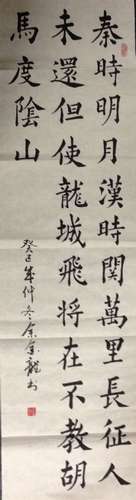 秦時明月漢時関萬里長征人
未還但使龍城飛将在不教胡
馬度陰山
癸巳年仲冬余金龍书